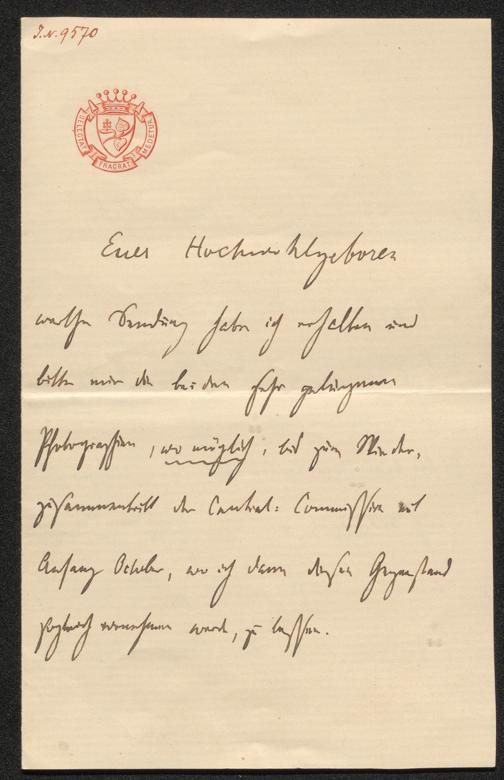 I.N. 9570
DELECTAT FRAGRAT MEDETUR
Euer Hochwohlgeboren
werthe Sendung habe ich erhalten und
bitte mir die beiden sehr gelungenen
Photographien, wo möglich, bis zum Wieder,
zusammentritt der Central: Commission mit
Anfang October, wo ich dann diesen Gegenstand
sogleich vornehmen werde, zu lassen.